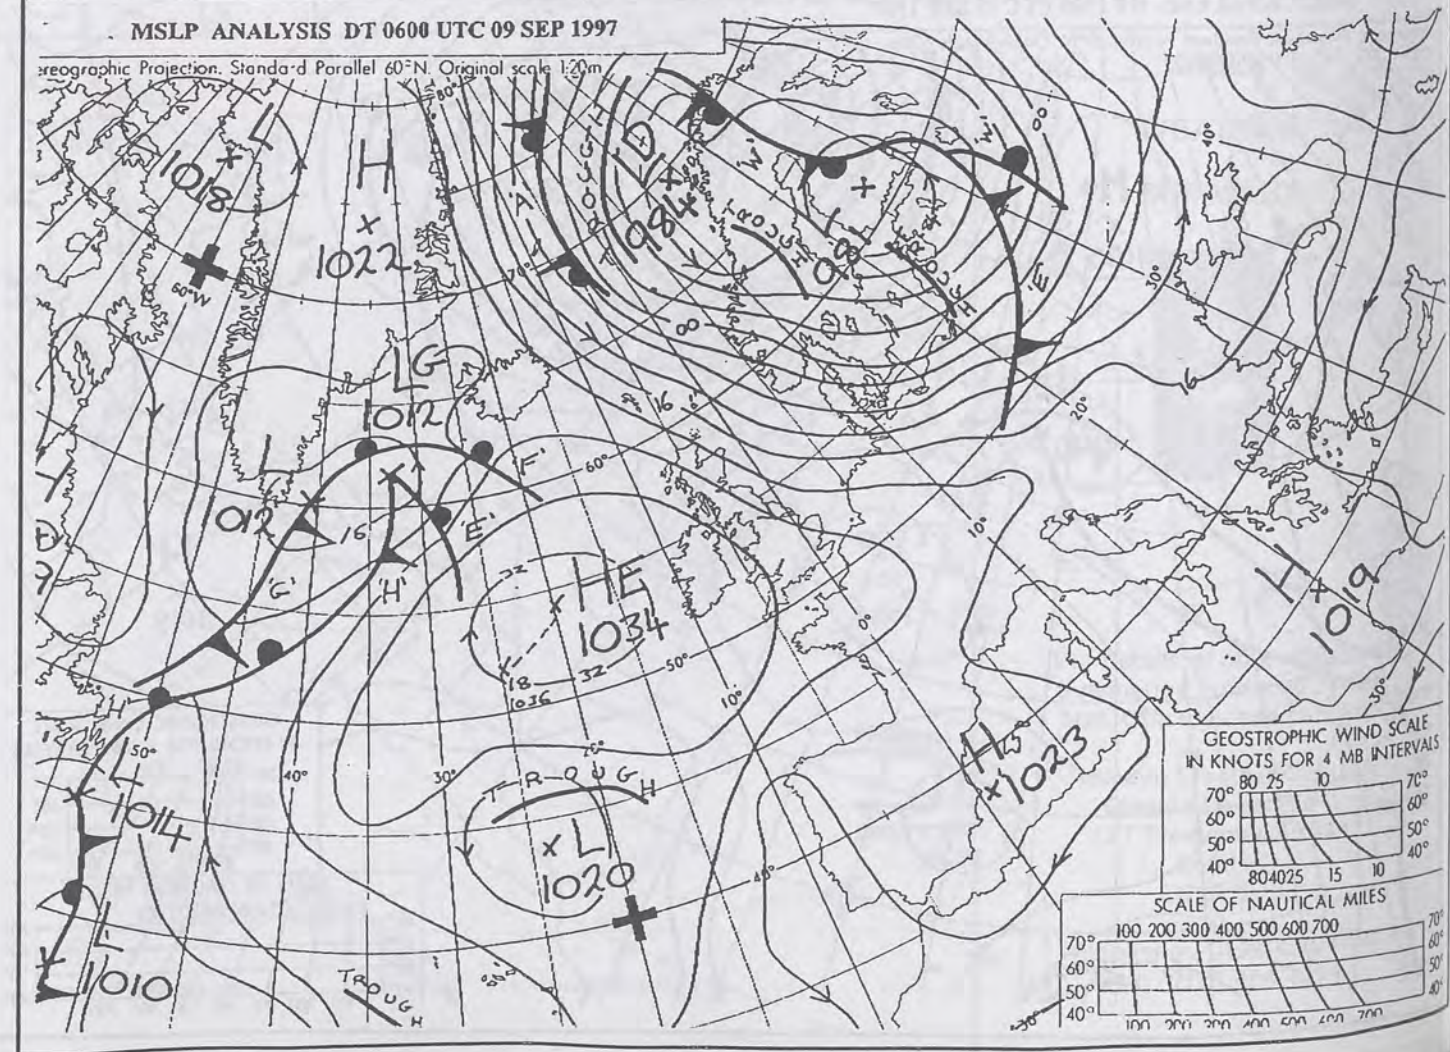 MSLP ANALYSIS DT 0600 UTC 09 SEP 1997
ereographic Projection. Standard Parallel 60°N. Original scale 1:20m
80°
L
1018
60°W
H
1022
'A'
TROUGH
LD
984
'W'
TROUGH
981
TROUGH
'W'
'E'
00
00
40°
30°
20°
10°
0°
70°
16
16
LG
1012
L
1012
16
'G'
'H'
'E'
'F'
60°
HE
1034
32
32
18
1036
50°
10°
H
1019
30°
H
1023
L
1014
50°
40°
30°
20°
TROUGH
L
1020
40°
L
1010
TROUGH
30°
GEOSTROPHIC WIND SCALE
IN KNOTS FOR 4 MB INTERVALS
80 25 10
70° 70°
60° 60°
50° 50°
40° 40°
80 40 25 15 10
SCALE OF NAUTICAL MILES
100 200 300 400 500 600 700
70° 70°
60° 60°
50° 50°
40° 40°
100 200 300 400 500 600 700